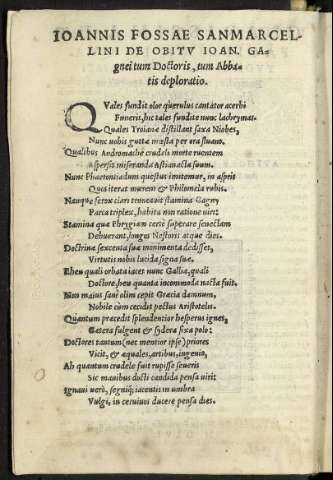 IOANNIS FOSSAE SANMARCEL-
LINI DE OBITV IOAN. GA-
gnei tum Doctoris, tum Abba-
tis deploratio.
QVales fundit olor querulus cantator acerbi
Funeris, hic tales fundite nunc lachrymas.
Quales Troianæ distillant saxa Niobes,
Nunc uobis gutta mœsta per ora fluant.
Qualibus Andromaché crudeli morte ruentem
Aspersit miseranda Astianacta suum.
Nunc Phaetontiadum questus imitemur, in aspris
Quos iterat murem & Philomela rubis.
Nanque ferox iam secauit stamina Gagny
Parca triplex, habita non ratione uiri:
Stamina quæ Phrygiam certé superare senectam
Debuerant, longos Nestoris atque dies.
Doctrinæ sexcenta suæ monimenta dedisset,
Virtutis nobis lucida signa suæ.
Eheu quali orbata iaces nunc Gallia, quali
Doctore, heu quanta incommoda nacta fuit.
Non maius sané olim cepit Græcia damnum,
Nobile cùm cecidit pectus Aristotelu.
Quantum præcedit splendentior hesperus ignes,
Cætera fulgent & sydera fixa polo:
Doctores tantum (nec mentior ipse) priores
Vicit, & æquales, artibus, ingenio,
Ah quantum crudele fuit rupisse seueris
Sic manibus docti candida pensa uiri:
Ignaui uerò, segniq; iacentis in umbra
Vulgi, in ceruinos ducere pensa dies.